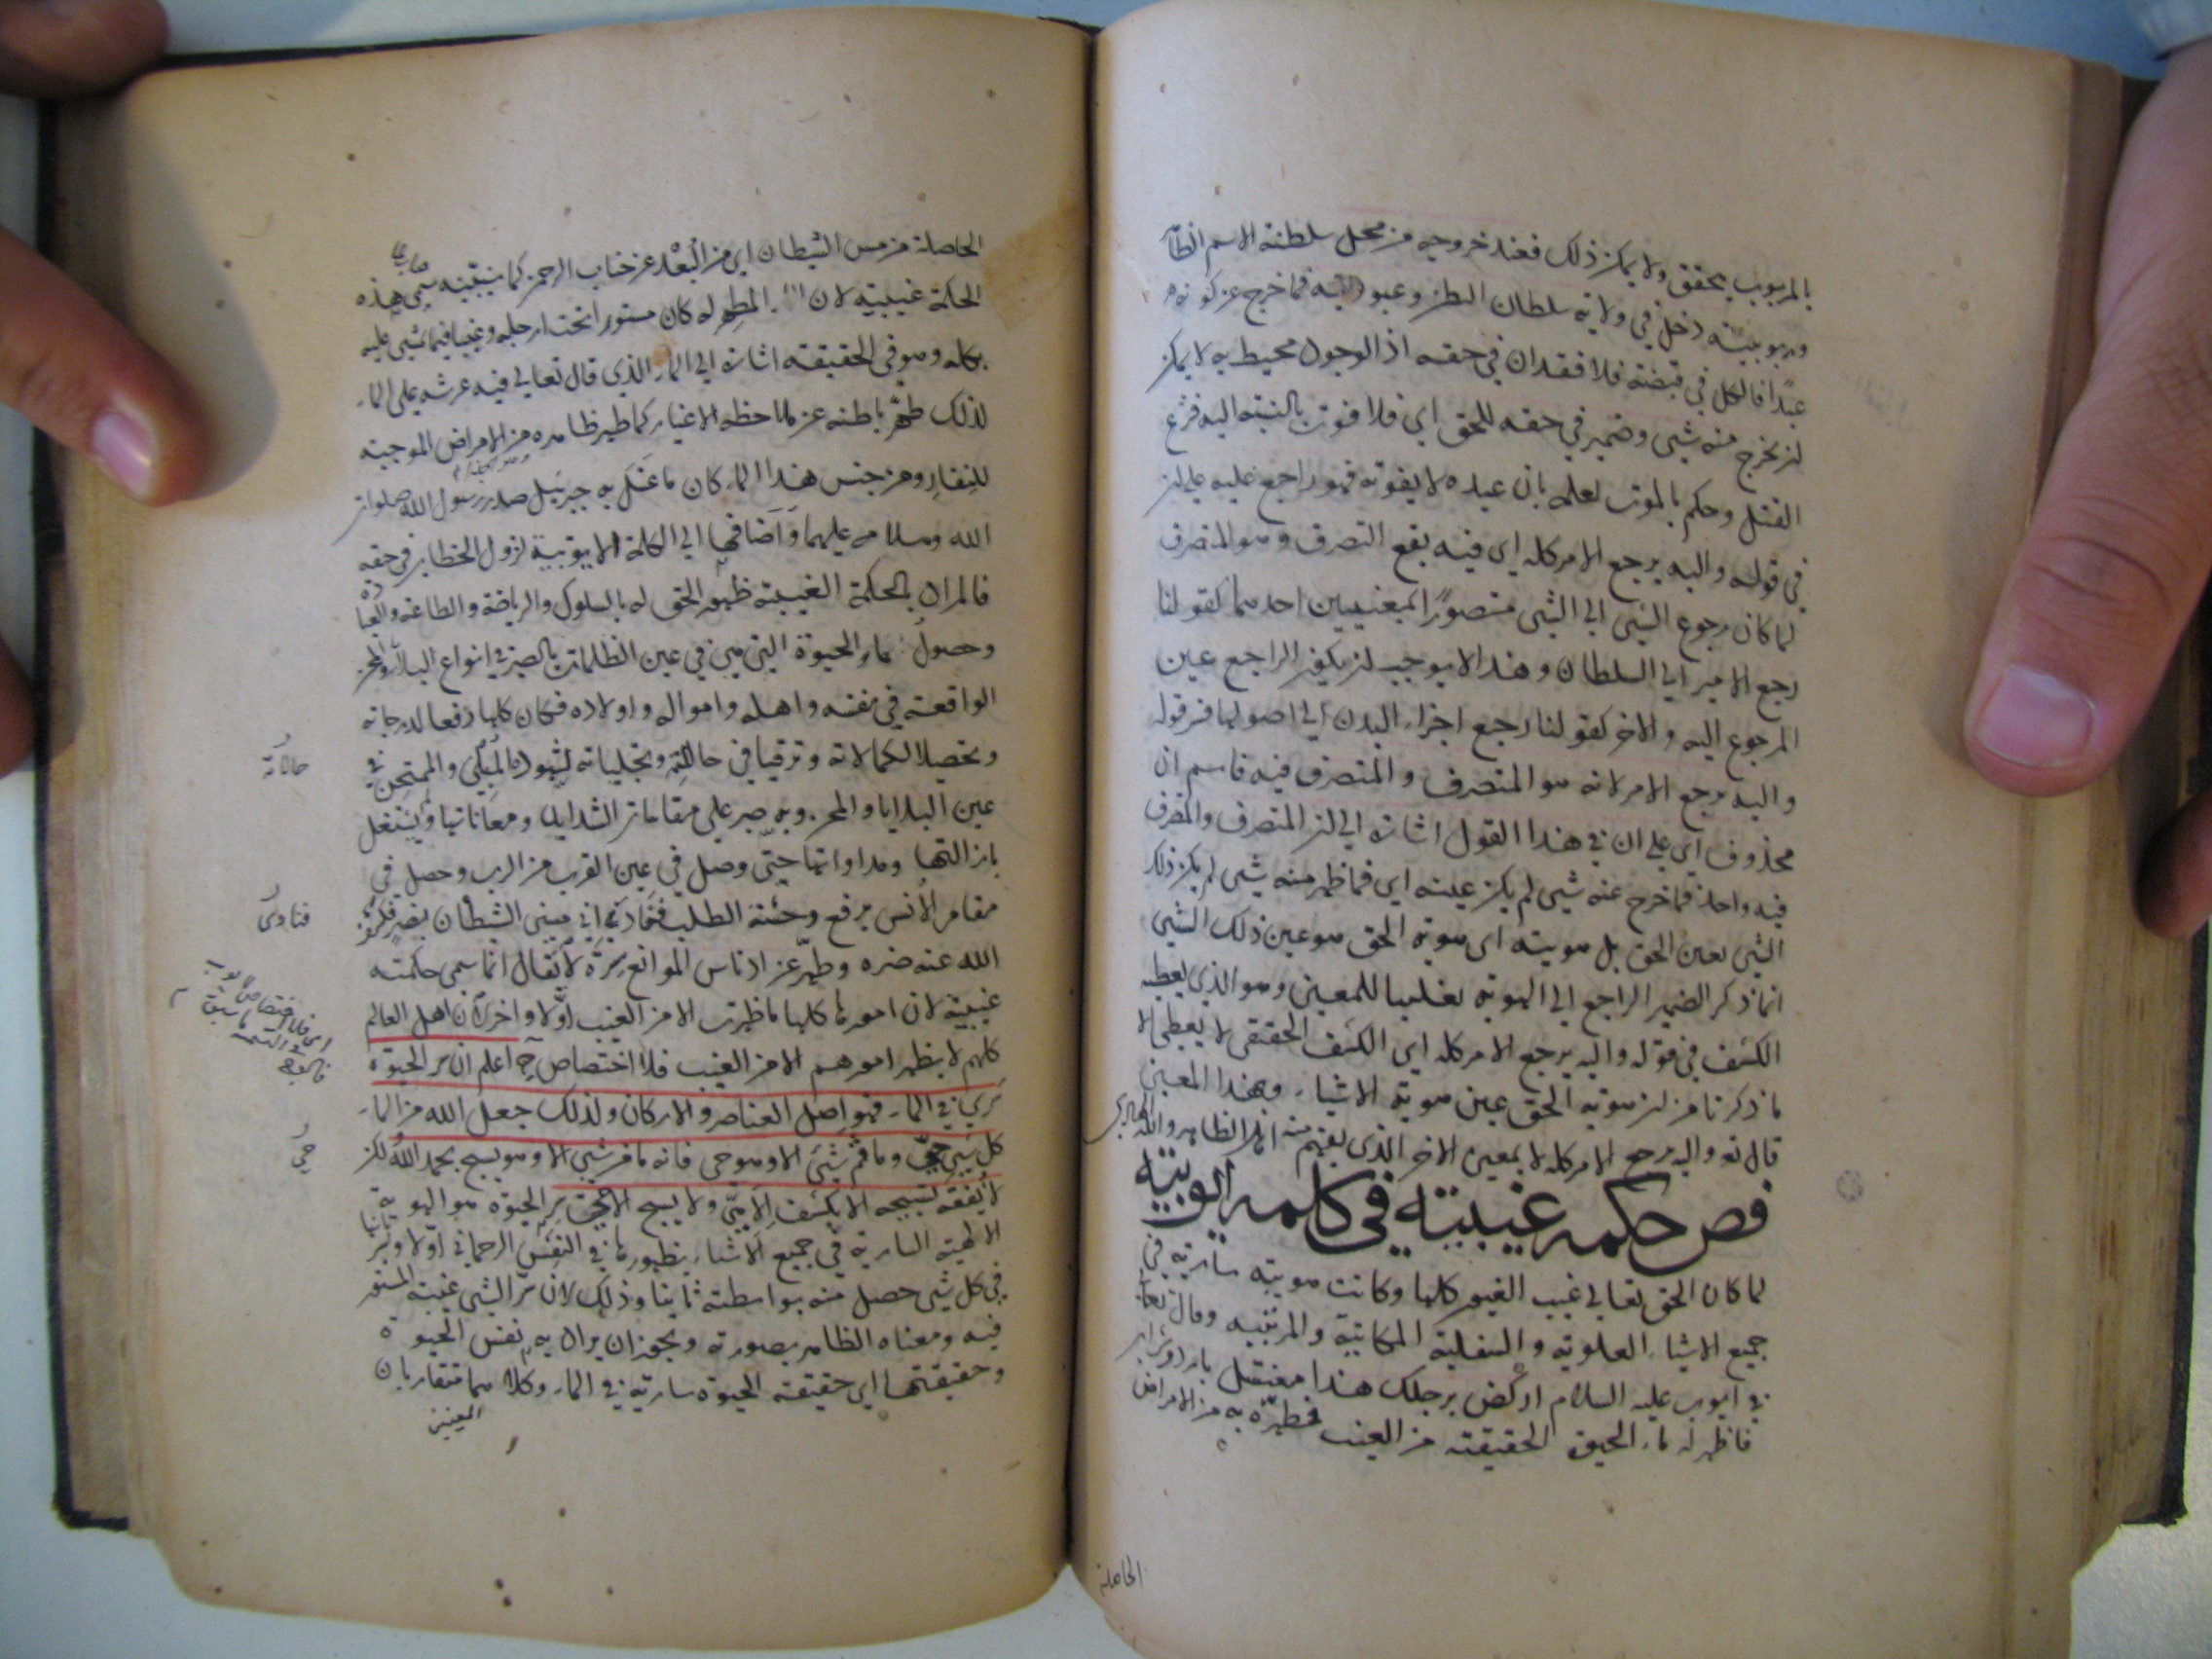 بالمربوب يحقق ولا يمكن ذلك فعند خروجه من محل سلطنة الاسم الظاهر
وربوبيته دخل في ولاية سلطان البطن وعبوديته فما خرج عن كونه
عبدا فالكل في قبضته فلا فقدان في حقه اذ الوجود محيط به لا يمكن
ان يخرج منه شيء وضمير في حقه للحق اي فلا فوت بالنسبة اليه فشرع
القتل وحكم بالموت لعلمه بان عبده لا يفوته فهو راجع عليه على ان
في قوله واليه يرجع الامر كله اي فيه يقع التصرف وهو المتصرف
لما كان رجوع الشيء الى الشيء متصورا بمعنيين احدهما كقولنا
رجع الامير الى السلطان وهذا لا يوجب ان يكون الراجع عين
المرجوع اليه والاخر كقولنا رجع اجزاء البدن الى اصولها فسر قوله
واليه يرجع الامر لانه هو المتصرف والمتصرف فيه فاسم ان
محذوف اي على ان في هذا القول اشارة الى ان المتصرف والمتصرف
فيه واحد فما خرج عنه شيء لم يكن عينه اي فما ظهر منه شيء لم يكن ذلك
الشيء بعين الحق بل هويته اي هوية الحق هو عين ذلك الشيء
انما ذكر الضمير الراجع الى الهوية تغليبا للمعنى وهو الذي يعطيه
الكشف في قوله واليه يرجع الامر كله اي الكشف الحقيقي لا يعطى الا
ما ذكرنا من ان هوية الحق عين هوية الاشياء وبهذا المعنى
قال تع واليه يرجع الامر كله لا بمعنى الاخر الذي يفهم منه اهل الظاهر والله الهادي
فص حكمه غيبيته في كلمه ايوبيته
لما كان الحق تعالى غيب الغيوب كلها وكانت هويته سارية في
جميع الاشياء العلوية والسفلية المكانية والمرتبيه وقال تعالى
في ايوب عليه السلام اركض برجلك هذا مغتسل بارد وشراب
فاظهر له ماء الحيوة الحقيقته من الغيب فطهره به من الامراض
الحاصلة
الحاصلة من مس الشيطان اي من البعد عن جناب الرحمن كما يبينه سمى هذه
الحكمة غيبيته لان المطهر له كان مستورا تحت ارجله وغيبا فيما يمشي عليه
بكله وهو في الحقيقته اشارة الى الماء الذي قال تعالى فيه عرشه على الماء
لذلك طهر باطنه عن ملاحظه الاغيار كما طهر ظاهره من الامراض الموجبته
للنفار ومن جنس هذا الماء كان ما غسل به جبرئيل صدر رسول الله صلوات
الله وسلامه عليهما واضافها الى الكلمة الايوبية لنزول الخطاب في حقه
فالمراد بالحكمة الغيبيته ظهور الحق له بالسلوك والرياضة والطاعة والعبادة
وحصول ماء الحيوة التي هي في عين الظلمات بالصبر في انواع البلاء والمحن
الواقعته في نفسه واهله وامواله واولاده فكان كلها رفعا لدرجاته
وتحصيلا لكمالاته وترقيا في حالاته وتجلياته لشهوده المبلي والممتحن في
حالاته
عين البلايا والمحن وبه صبر على مقامات الشدايد ومعاناتها ويشتغل
بازالتها ومداواتها حتى وصل في عين القرب من الرب وحصل في
مقام الانس برفع وحشة الطلب فنادى اني مسني الشيطان بضر فكشف
فنادى
الله عنه ضره وطهر عن ادناس الموانع سره لا يقال انما سمى حكمته
غيبية لان امورها كلها ما ظهرت الا من الغيب اولا واخرا لان اهل العالم
كلهم لا يظهر امورهم الا من الغيب فلا اختصاص ح اعلم ان سر الحيوة
سرى في الماء فهو اصل العناصر والاركان ولذلك جعل الله من الماء
كل شيء حي وما ثم شيء الا وهو حي فانه ما من شيء الا وهو يسبح بحمد الله لكن
حي
لا يفقه تسبيحه الا بكشف الهي ولا يسبح الا حي سر الحيوة هو الهوية
الالهية السارية في جميع الاشياء بظهورها في النفس الرحماني اولا وسر
في كل شيء حصل منه بواسطته ثانيا وذلك لان سر الشيء غيبته المستور
فيه ومعناه الظاهر بصورته ويجوز ان يراد به نفس الحيوة
وحقيقتها اي حقيقته الحيوة سارية في الماء وكلاهما متقاربان
المعنيين